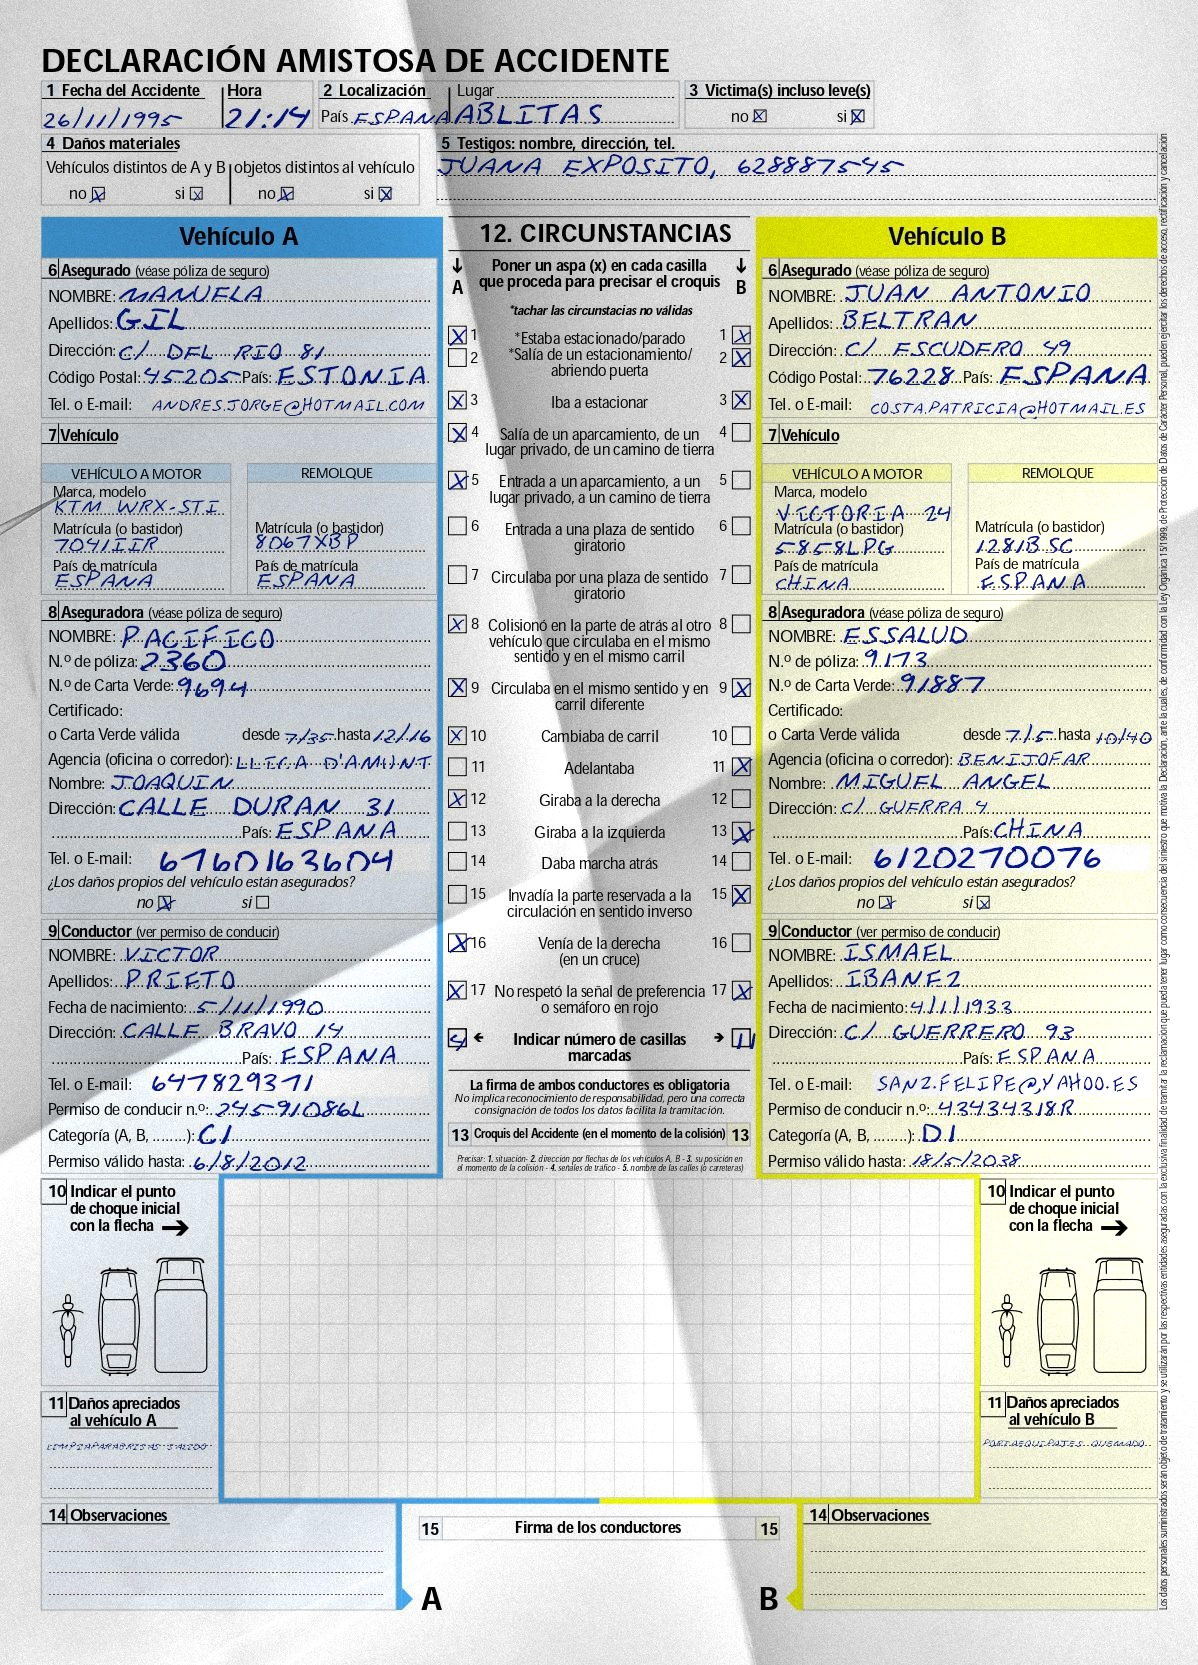 DECLARACIÓN AMISTOSA DE ACCIDENTE
1 Fecha del Accidente Hora 2 Localización Lugar 3 Victima(s) incluso leve(s)
26/11/1995 21:14 País ESPANA ABLITAS no X si X
4 Daños materiales 5 Testigos: nombre, dirección, tel.
Vehículos distintos de A y B objetos distintos al vehículo JUANA EXPOSITO, 628887545
no X si X no X si X
Vehículo A
6 Asegurado (véase póliza de seguro)
NOMBRE: MANUELA
Apellidos: GIL
Dirección: C/ DEL RIO 81
Código Postal: 45205 País: ESTONIA
Tel. o E-mail: ANDRES.JORGE@HOTMAIL.COM
7 Vehículo
VEHÍCULO A MOTOR REMOLQUE
Marca, modelo
KTM WRX-STI
Matrícula (o bastidor) Matrícula (o bastidor)
7041IIR 8067XBP
País de matrícula País de matrícula
ESPANA ESPANA
8 Aseguradora (véase póliza de seguro)
NOMBRE: PACIFICO
N.º de póliza: 2360
N.º de Carta Verde: 9694
Certificado:
o Carta Verde válida desde 7/35 hasta 12/16
Agencia (oficina o corredor): LLICA D'AMUNT
Nombre: JOAQUIN
Dirección: CALLE DURAN 31
País: ESPANA
Tel. o E-mail: 6760163604
¿Los daños propios del vehículo están asegurados?
no X si
9 Conductor (ver permiso de conducir)
NOMBRE: VICTOR
Apellidos: PRIETO
Fecha de nacimiento: 5/11/1990
Dirección: CALLE BRAVO 14
País: ESPANA
Tel. o E-mail: 647829371
Permiso de conducir n.º: 24591086L
Categoría (A, B, ........): C1
Permiso válido hasta: 6/8/2012
12. CIRCUNSTANCIAS
A Poner un aspa (x) en cada casilla que proceda para precisar el croquis B
*tachar las circunstacias no válidas
X 1 *Estaba estacionado/parado 1 X
2 *Salía de un estacionamiento/ 2 X
abriendo puerta
X 3 Iba a estacionar 3 X
X 4 Salía de un aparcamiento, de un 4
lugar privado, de un camino de tierra
X 5 Entrada a un aparcamiento, a un 5
lugar privado, a un camino de tierra
6 Entrada a una plaza de sentido 6
giratorio
7 Circulaba por una plaza de sentido 7
giratorio
X 8 Colisionó en la parte de atrás al otro 8
vehículo que circulaba en el mismo
sentido y en el mismo carril
X 9 Circulaba en el mismo sentido y en 9 X
carril diferente
X 10 Cambiaba de carril 10
11 Adelantaba 11 X
X 12 Giraba a la derecha 12
13 Giraba a la izquierda 13 X
14 Daba marcha atrás 14
15 Invadía la parte reservada a la 15 X
circulación en sentido inverso
X 16 Venía de la derecha 16
(en un cruce)
X 17 No respetó la señal de preferencia 17 X
o semáforo en rojo
4 ← Indicar número de casillas → 11
marcadas
La firma de ambos conductores es obligatoria
No implica reconocimiento de responsabilidad, pero una correcta
consignación de todos los datos facilita la tramitación.
13 Croquis del Accidente (en el momento de la colisión) 13
Precisar: 1. situación- 2. dirección por flechas de los vehículos A, B - 3. su posición en
el momento de la colisión - 4. señales de tráfico - 5. nombre de las calles (o carreteras)
Vehículo B
6 Asegurado (véase póliza de seguro)
NOMBRE: JUAN ANTONIO
Apellidos: BELTRAN
Dirección: C/ ESCUDERO 49
Código Postal: 76228 País: ESPANA
Tel. o E-mail: COSTA.PATRICIA@HOTMAIL.ES
7 Vehículo
VEHÍCULO A MOTOR REMOLQUE
Marca, modelo
VICTORIA 24
Matrícula (o bastidor) Matrícula (o bastidor)
5858LPG 1281BSC
País de matrícula País de matrícula
CHINA ESPANA
8 Aseguradora (véase póliza de seguro)
NOMBRE: ESSALUD
N.º de póliza: 9173
N.º de Carta Verde: 91887
Certificado:
o Carta Verde válida desde 7/5 hasta 10/40
Agencia (oficina o corredor): BENIJOFAR
Nombre: MIGUEL ANGEL
Dirección: C/ GUERRA 4
País: CHINA
Tel. o E-mail: 6120270076
¿Los daños propios del vehículo están asegurados?
no X si X
9 Conductor (ver permiso de conducir)
NOMBRE: ISMAEL
Apellidos: IBANEZ
Fecha de nacimiento: 4/1/1933
Dirección: C/ GUERRERO 93
País: ESPANA
Tel. o E-mail: SANZ.FELIPE@YAHOO.ES
Permiso de conducir n.º: 43434318R
Categoría (A, B, ........): D1
Permiso válido hasta: 18/5/2038
10 Indicar el punto
de choque inicial
con la flecha →
11 Daños apreciados
al vehículo A
LIMPIAPARABRISAS SALIDO
14 Observaciones
10 Indicar el punto
de choque inicial
con la flecha →
11 Daños apreciados
al vehículo B
PORTAEQUIPAJES QUEMADO
14 Observaciones
15 Firma de los conductores 15
A B
Los datos personales suministrados serán objeto de tratamiento y se utilizarán por las respectivas entidades aseguradas con la exclusiva finalidad de tramitar la reclamación que pueda tener lugar como consecuencia del siniestro que motiva la Declaración, ante la cuales, de conformidad con la Ley Orgánica 15/1999, de Protección de Datos de Carácter Personal, pueden ejercitar los derechos de acceso, rectificación y cancelación